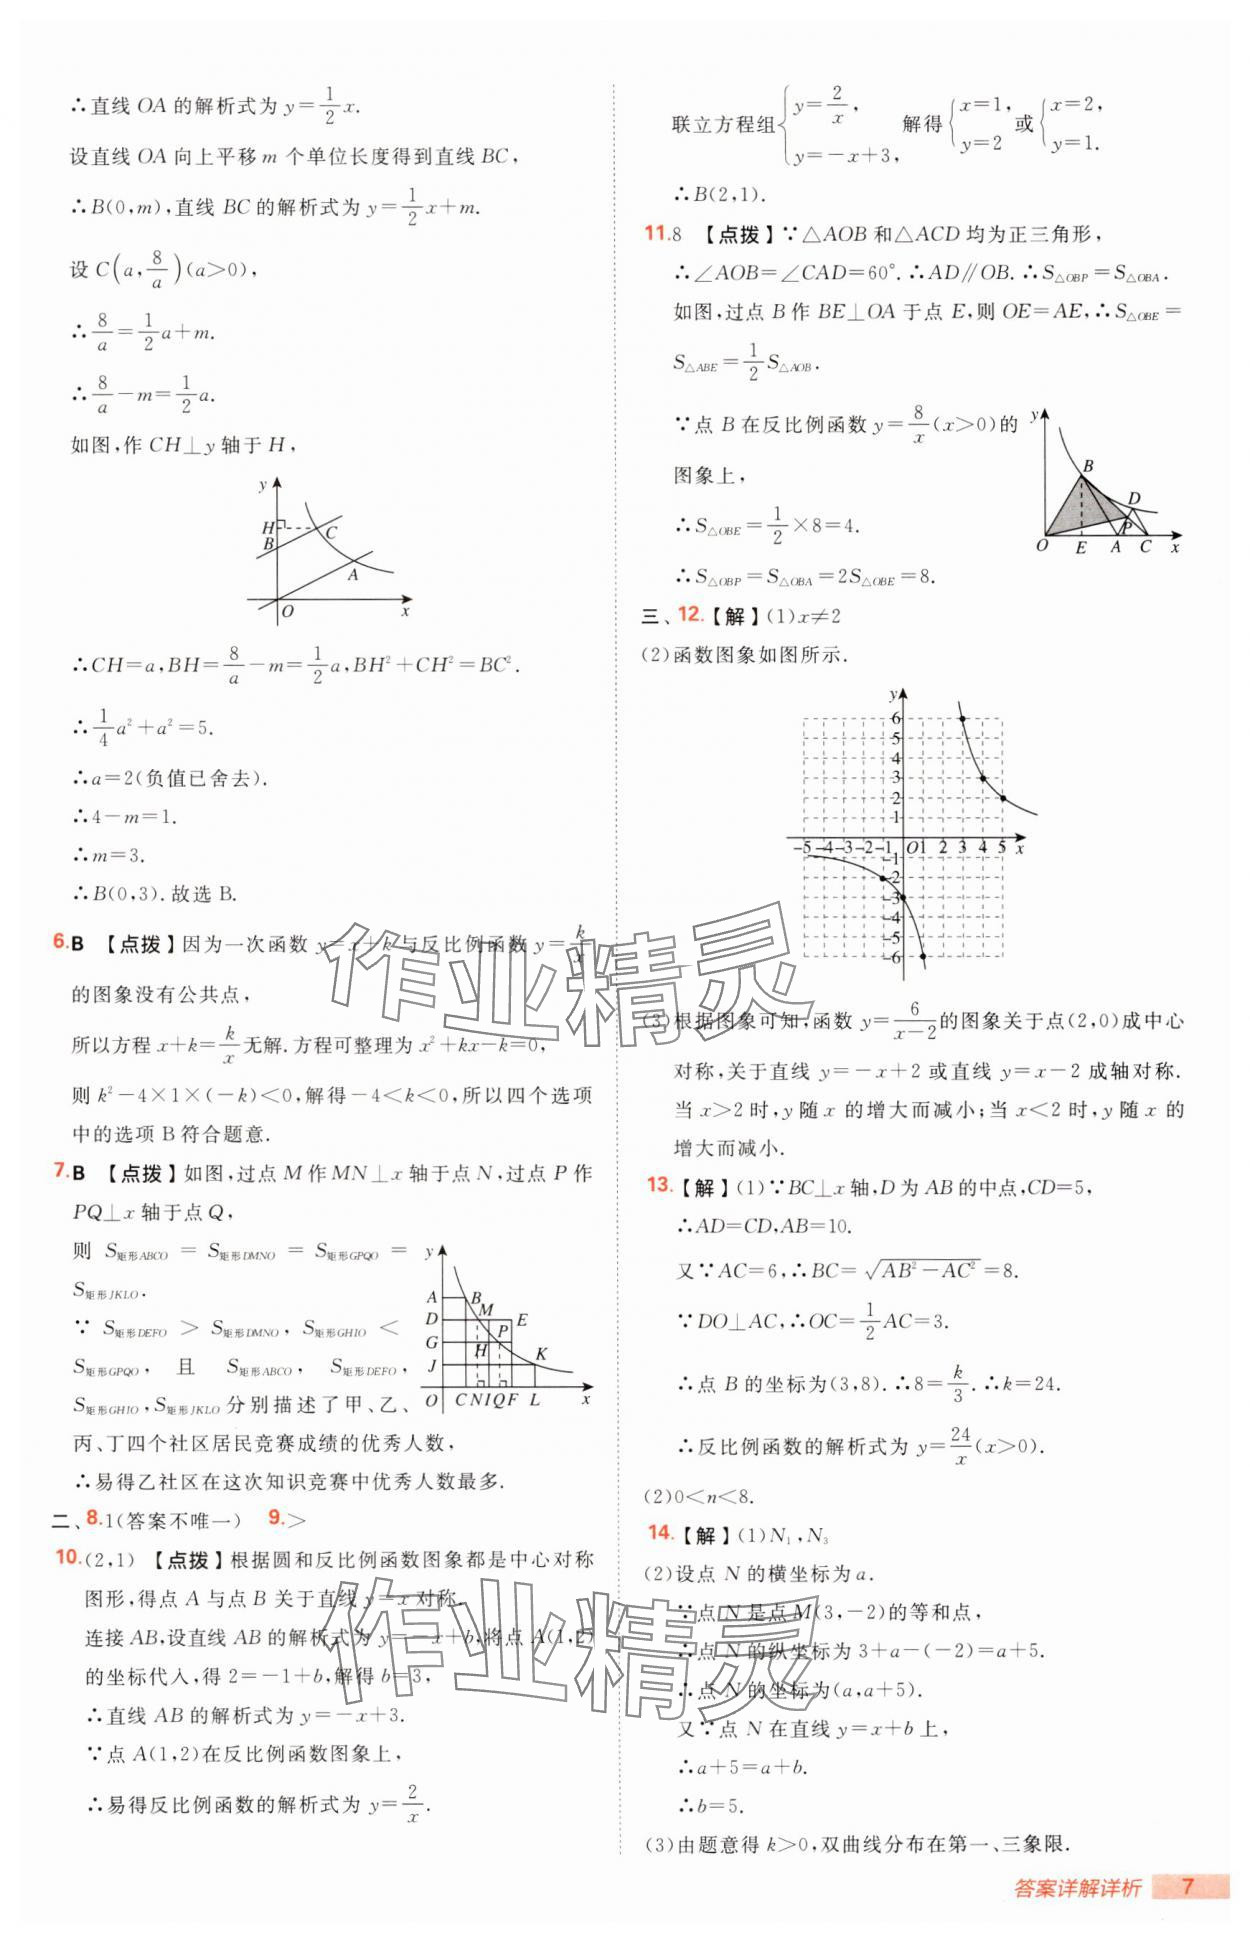 ∴直线 OA 的解析式为 y=1/2x.
设直线 OA 向上平移 m 个单位长度得到直线 BC,
∴B(0,m),直线 BC 的解析式为 y=1/2x+m.
设 C(a,8/a)(a>0),
∴8/a=1/2a+m.
∴8/a-m=1/2a.
如图,作 CH⊥y 轴于 H,
y
H
C
B
A
O
x
∴CH=a,BH=8/a-m=1/2a,BH²+CH²=BC².
∴1/4a²+a²=5.
∴a=2(负值已舍去).
∴4-m=1.
∴m=3.
∴B(0,3).故选 B.
6.B 【点拨】因为一次函数 y=x+k 与反比例函数 y=k/x
的图象没有公共点,
所以方程 x+k=k/x无解.方程可整理为 x²+kx-k=0,
则 k²-4×1×(-k)<0,解得-4<k<0,所以四个选项
中的选项 B 符合题意.
7.B 【点拨】如图,过点 M 作 MN⊥x 轴于点 N,过点 P 作
PQ⊥x 轴于点 Q,
则 S矩形ABCO = S矩形DMNO = S矩形GPQO =
S矩形JKLO.
∵ S矩形DEFO > S矩形DMNO, S矩形GHIO <
S矩形GPQO, 且 S矩形ABCO, S矩形DEFO,
S矩形GHIO,S矩形JKLO分别描述了甲、乙、
y
A B
D M E
G H P
J K
O C N I Q F L x
丙、丁四个社区居民竞赛成绩的优秀人数,
∴易得乙社区在这次知识竞赛中优秀人数最多.
二、8.1(答案不唯一) 9.>
10.(2,1) 【点拨】根据圆和反比例函数图象都是中心对称
图形,得点 A 与点 B 关于直线 y=x 对称.
连接 AB,设直线 AB 的解析式为 y=-x+b,将点 A(1,2)
的坐标代入,得 2=-1+b,解得 b=3,
∴直线 AB 的解析式为 y=-x+3.
∵点 A(1,2)在反比例函数图象上,
∴易得反比例函数的解析式为 y=2/x.
联立方程组{y=2/x, y=-x+3, 解得{x=1, y=2 或{x=2, y=1.
∴B(2,1).
11.8 【点拨】∵△AOB 和△ACD 均为正三角形,
∴∠AOB=∠CAD=60°.∴AD∥OB.∴S△OBP=S△OBA.
如图,过点 B 作 BE⊥OA 于点 E,则 OE=AE,∴S△OBE=
S△ABE=1/2S△AOB.
∵点 B 在反比例函数 y=8/x(x>0)的
图象上,
∴S△OBE=1/2×8=4.
∴S△OBP=S△OBA=2S△OBE=8.
y
B
D
P
O E A C x
三、12.【解】(1)x≠2
(2)函数图象如图所示.
y
6
5
4
3
2
1
-5 -4 -3 -2 -1 O 1 2 3 4 5 x
-1
-2
-3
-4
-5
-6
(3)根据图象可知,函数 y=6/(x-2)的图象关于点(2,0)成中心
对称,关于直线 y=-x+2 或直线 y=x-2 成轴对称.
当 x>2 时,y 随 x 的增大而减小;当 x<2 时,y 随 x 的
增大而减小.
13.【解】(1)∵BC⊥x 轴,D 为 AB 的中点,CD=5,
∴AD=CD,AB=10.
又∵AC=6,∴BC=√(AB²-AC²)=8.
∵DO⊥AC,∴OC=1/2AC=3.
∴点 B 的坐标为(3,8).∴8=k/3.∴k=24.
∴反比例函数的解析式为 y=24/x(x>0).
(2)0<n<8.
14.【解】(1)N₁,N₃
(2)设点 N 的横坐标为 a.
∵点 N 是点 M(3,-2)的等和点,
∴点 N 的纵坐标为 3+a-(-2)=a+5.
∴点 N 的坐标为(a,a+5).
又∵点 N 在直线 y=x+b 上,
∴a+5=a+b.
∴b=5.
(3)由题意得 k>0,双曲线分布在第一、三象限.
答案详解详析 7
作业精灵
作业精灵